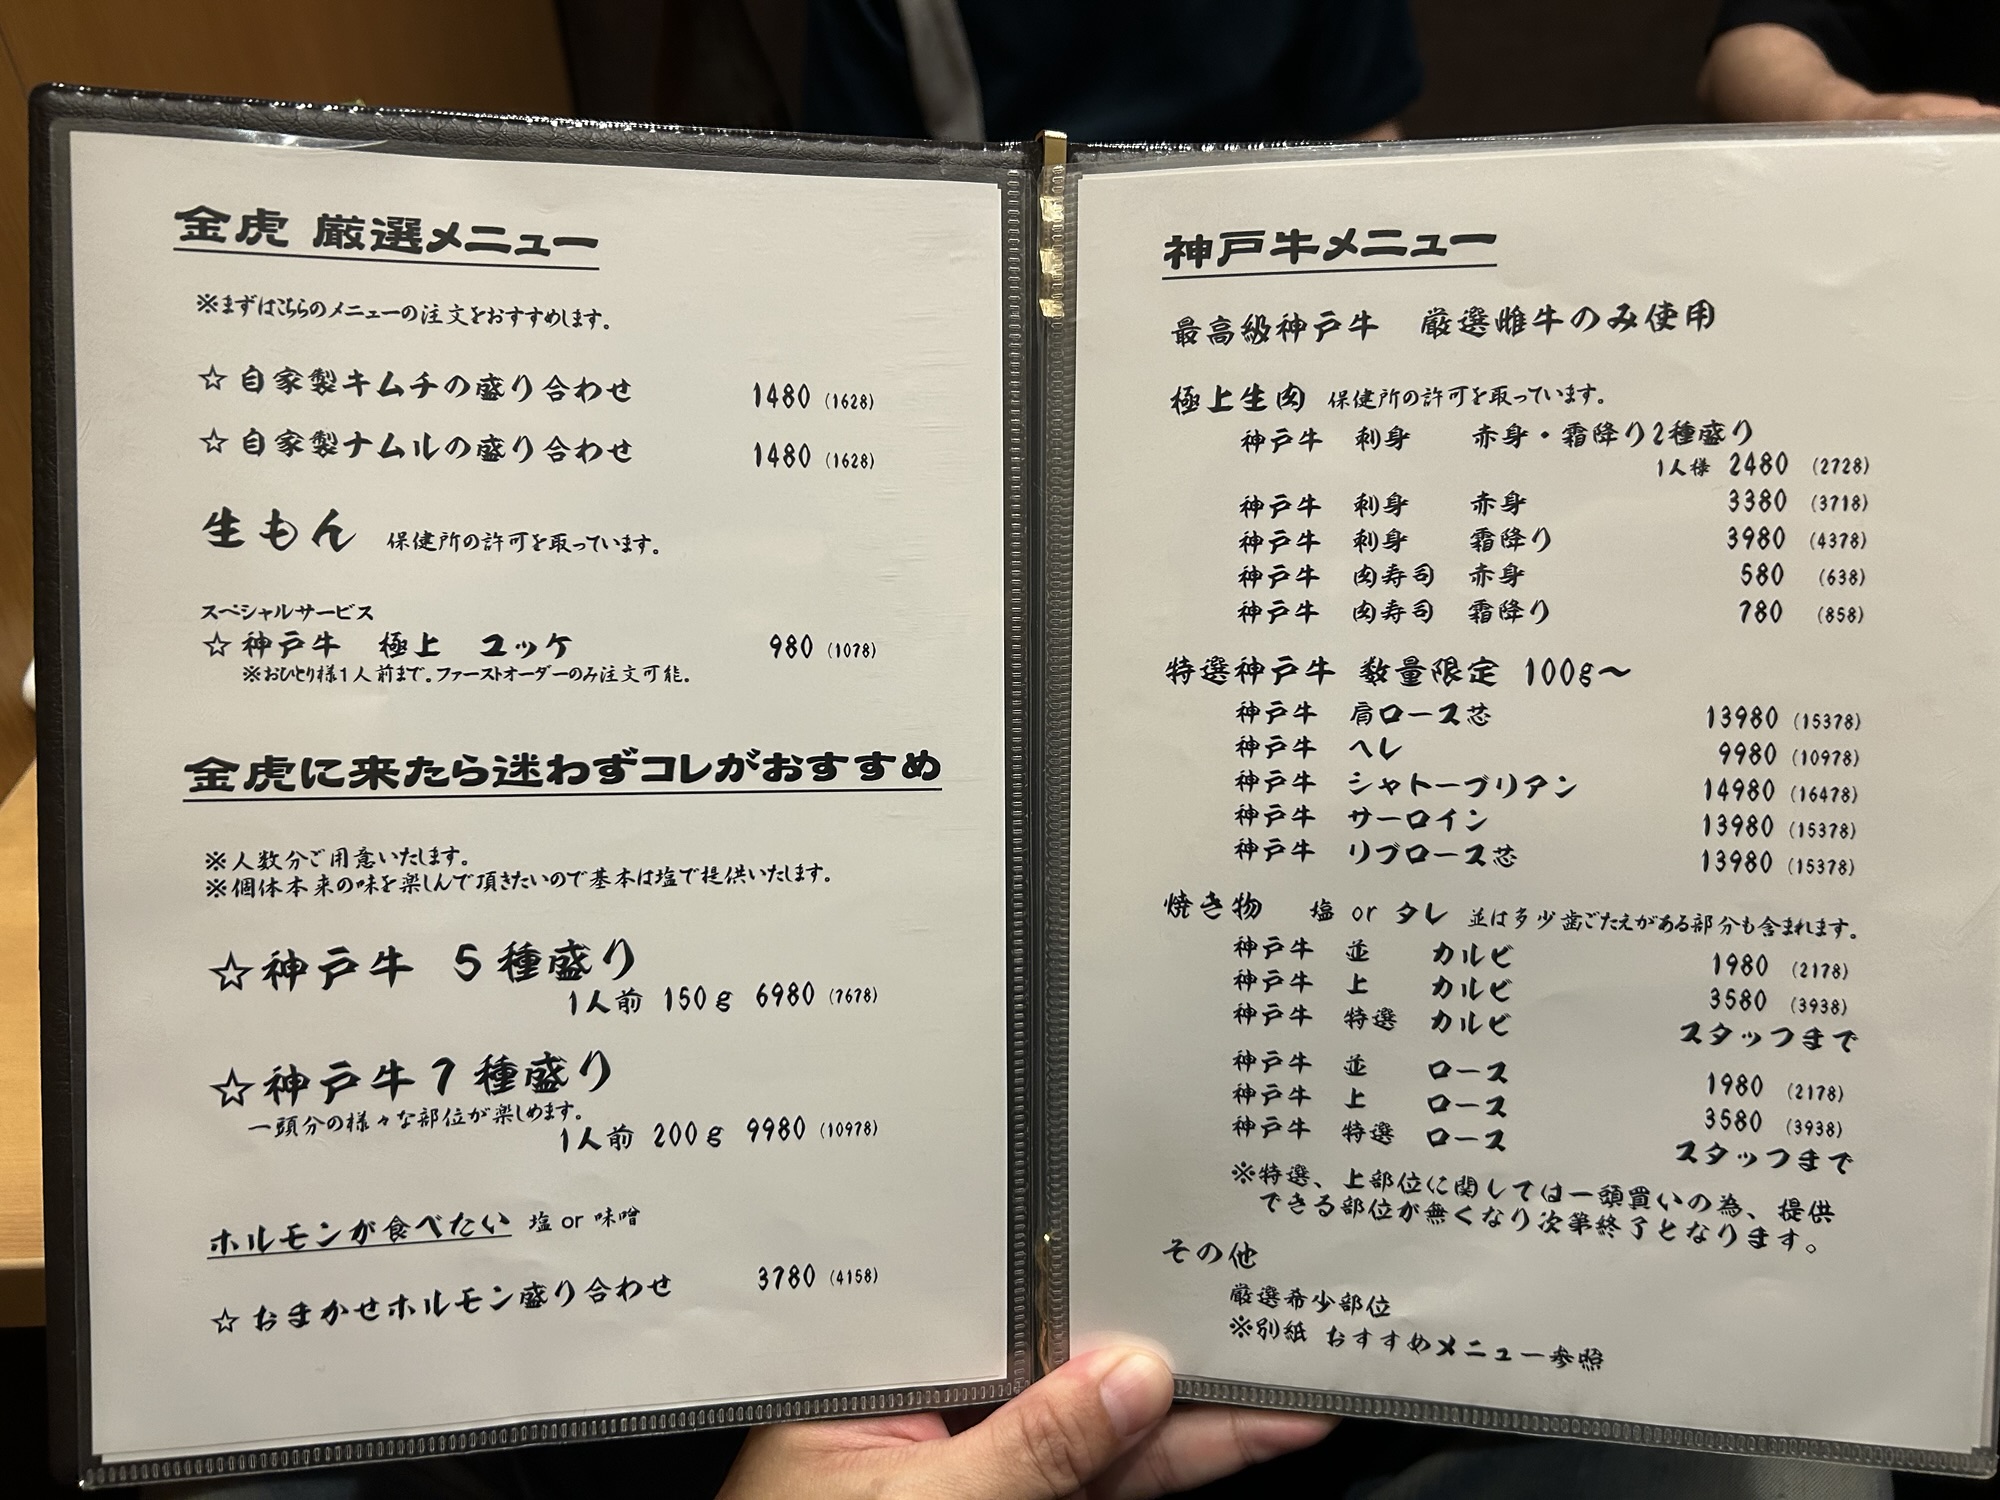 金虎 厳選メニュー
※まずはこちらのメニューの注文をおすすめします。
☆自家製キムチの盛り合わせ 1480 (1628)
☆自家製ナムルの盛り合わせ 1480 (1628)
生もん 保健所の許可を取っています。
スペシャルサービス
☆神戸牛 極上 ユッケ 980 (1078)
※おひとり様1人前まで。ファーストオーダーのみ注文可能。
金虎に来たら迷わずコレがおすすめ
※人数分ご用意いたします。
※個体本来の味を楽しんで頂きたいので基本は塩で提供いたします。
☆神戸牛 5種盛り
1人前 150g 6980 (7678)
☆神戸牛7種盛り
一頭分の様々な部位が楽しめます。
1人前 200g 9980 (10978)
ホルモンが食べたい 塩 or 味噌
☆おまかせホルモン盛り合わせ 3780 (4158)
神戸牛メニュー
最高級神戸牛 厳選雌牛のみ使用
極上生肉 保健所の許可を取っています。
神戸牛 刺身 赤身・霜降り2種盛り
1人様 2480 (2728)
神戸牛 刺身 赤身 3380 (3718)
神戸牛 刺身 霜降り 3980 (4378)
神戸牛 肉寿司 赤身 580 (638)
神戸牛 肉寿司 霜降り 780 (858)
特選神戸牛 数量限定 100g〜
神戸牛 肩ロース芯 13980 (15378)
神戸牛 ヘレ 9980 (10978)
神戸牛 シャトーブリアン 14980 (16478)
神戸牛 サーロイン 13980 (15378)
神戸牛 リブロース芯 13980 (15378)
焼き物 塩 or タレ 並は多少歯ごたえがある部分も含まれます。
神戸牛 並 カルビ 1980 (2178)
神戸牛 上 カルビ 3580 (3938)
神戸牛 特選 カルビ スタッフまで
神戸牛 並 ロース 1980 (2178)
神戸牛 上 ロース 3580 (3938)
神戸牛 特選 ロース スタッフまで
※特選、上部位に関しては一頭買いの為、提供
できる部位が無くなり次第終了となります。
その他
厳選希少部位
※別紙 おすすめメニュー参照